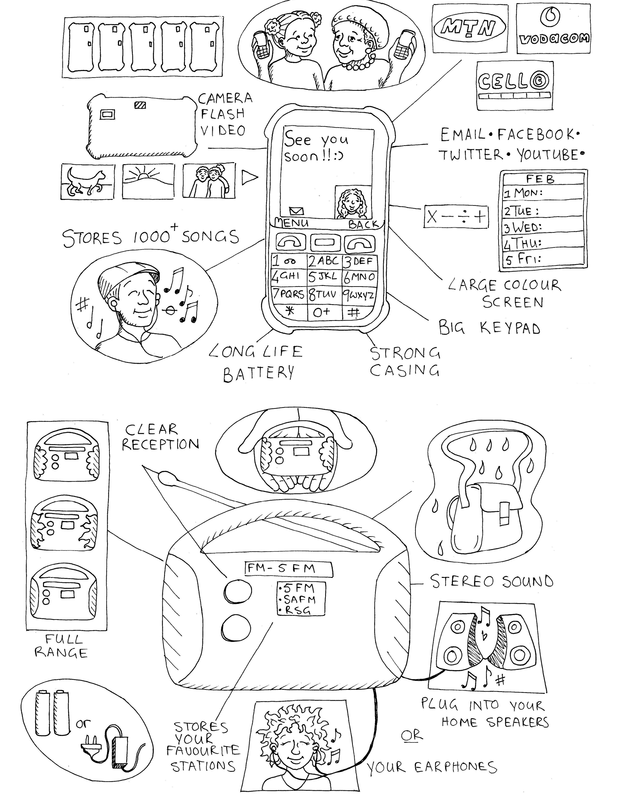 MTN
VODACOM
CELL C
CAMERA
FLASH
VIDEO
See you
soon!!:)
MENU BACK
1 2ABC 3DEF
4GHI 5JKL 6MNO
7PQRS 8TUV 9WXYZ
* 0+ #
EMAIL • FACEBOOK •
TWITTER • YOUTUBE •
X - ÷ +
FEB
1 MON:
2 TUE:
3 WED:
4 THU:
5 Fri:
STORES 1000+ SONGS
LARGE COLOUR
SCREEN
BIG KEYPAD
LONG LIFE
BATTERY
STRONG
CASING
CLEAR
RECEPTION
FM-5FM
•5FM
•SAFM
•RSG
STEREO SOUND
FULL
RANGE
PLUG INTO YOUR
HOME SPEAKERS
OR
YOUR EARPHONES
or
STORES
YOUR
FAVOURITE
STATIONS